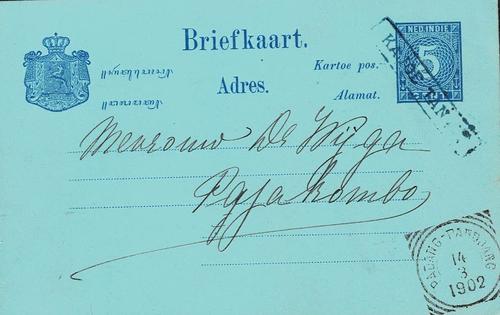 Briefkaart.
Adres.
Kartoe pos.
Alamat.
NED-INDIE
5
CENT
Mevrouw De Wijga
Pajakombo
PADANG-PANDJANG
14
3
1902